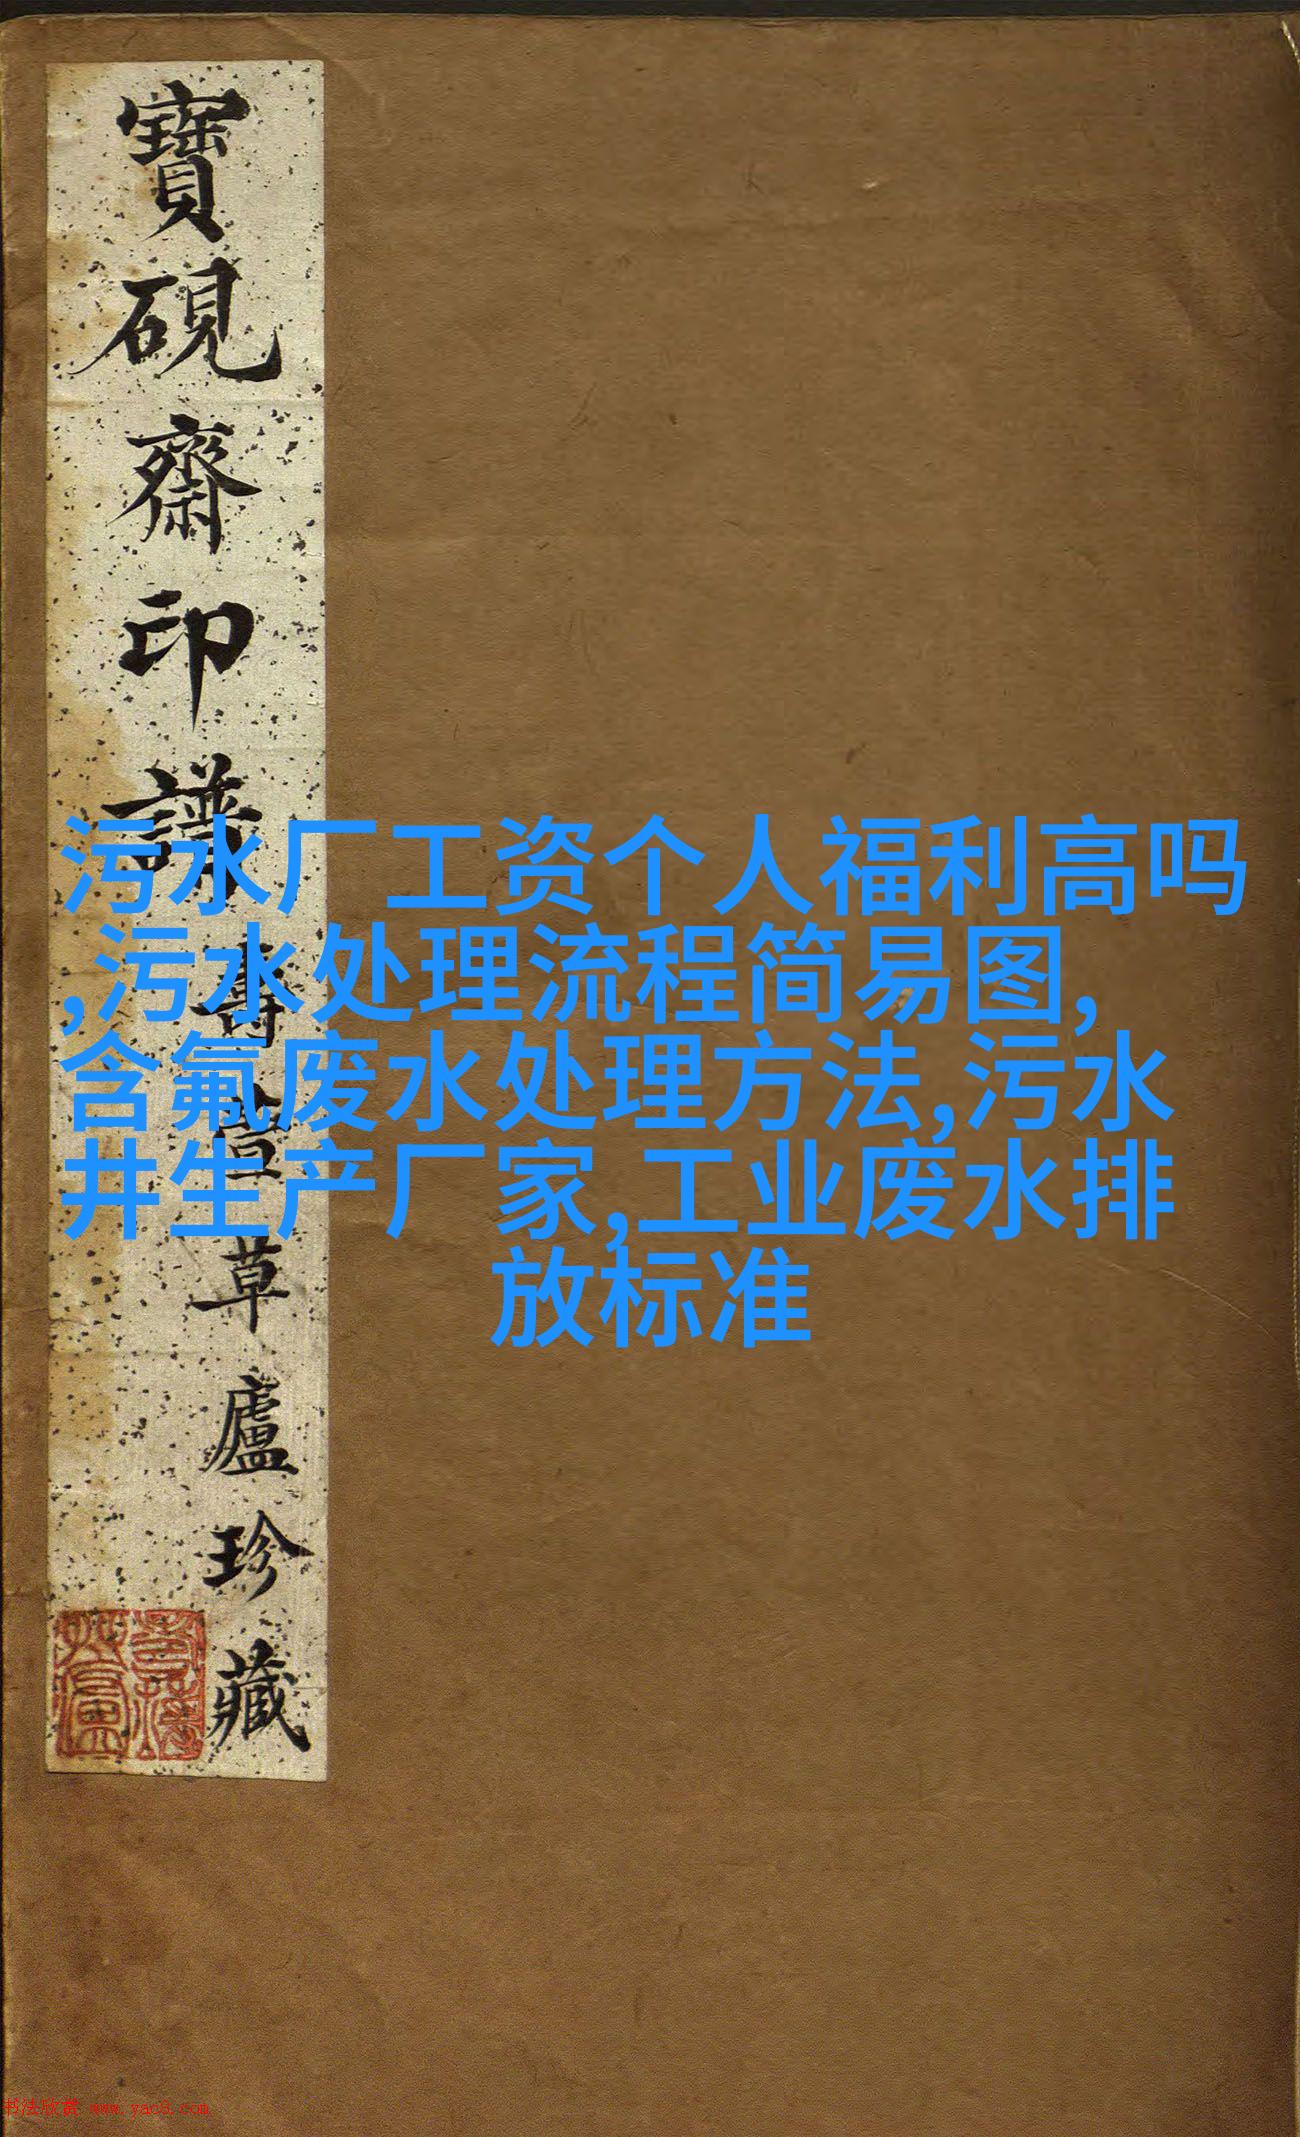 寶硯齋印譜
草廬珍藏
污水厂工资个人福利高吗
,污水处理流程简易图,
含氟废水处理方法,污水
井生产厂家,工业废水排
放标准
书法欣赏 www.yac8.com